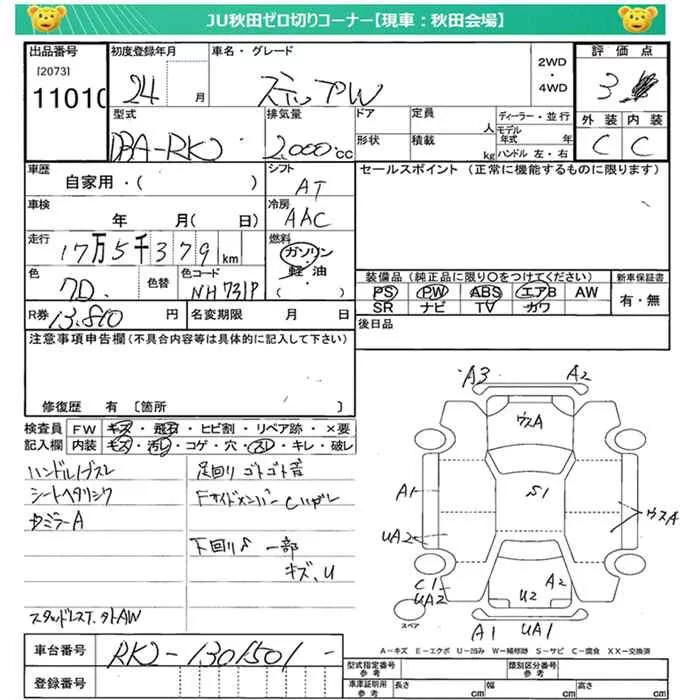 JU秋田ゼロ切りコーナー【現車：秋田会場】
出品番号 初度登録年月 車名・グレード 2WD・4WD 評価点
[2073]
11010 24 月 ステップW 3
型式 排気量 ドア 定員 人 ディーラー・並行 外装 内装
DBA-RK2 2,000cc 形状 積載 kg モデル年式 年 ハンドル 左・右 C C
車歴 シフト セールスポイント（正常に機能するものに限ります）
自家用・（ ） AT
車検 冷房
年 月（ 日） AAC
走行 燃料
17万5千379km ガソリン
軽油
色 色替 色コード ( )
クロ NH731P
装備品（純正品に限り○をつけてください） 新車保証書
PS PW ABS エアB AW 有・無
SR ナビ TV カワ
R券 13,810円 名変期限 月 日 後日品
注意事項申告欄（不具合内容等は具体的に記入して下さい）
修復歴 有 〔箇所 〕
検査員 FW キズ・飛石・ヒビ割・リペア跡・×要
記入欄 内装 キズ・汚レ・コゲ・穴・スレ・キレ・破レ
ハンドルノブスレ 足回りゴトゴト音
シートヘタリシワ Fサイドメンバー Cハガレ
サミラーA
下回りS 一部
キズ、U
スタッドレスT.タトAW
A3 A2
ウスA
A1 S1 ウスA
UA2
C1 A2
UA2 U2
スペア
A1 UA1
A－キズ E－エクボ U－凹み W－補修跡 S－サビ C－腐食 XX－交換済
車台番号 RK2-1301501-
登録番号
型式指定番号 参考 類別区分番号 参考
車庫証明用 参考 長さ cm 幅 cm 高さ cm